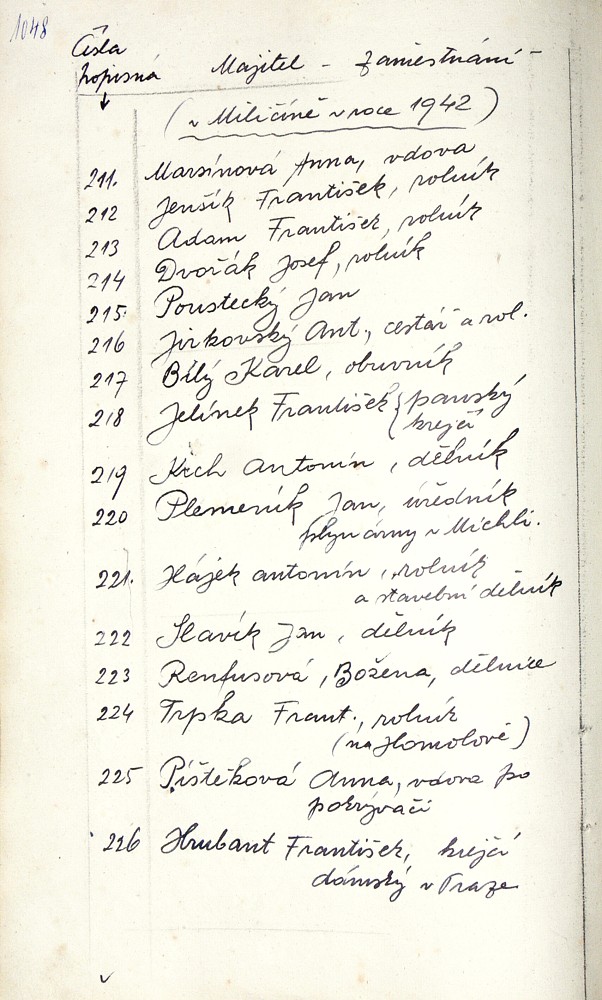 1048
Čísla
popisná Majitel - Zaměstnání -
(v Miličíně v roce 1942)
211. Marsínová Anna, vdova
212 Jenšík František, rolník
213 Adam František, rolník
214 Dvořák Josef, rolník
215. Poustecký Jan
216 Jirkovský Ant., cestář a rol.
217 Bílý Karel, obuvník
218 Jelínek František { panský
krejčí
219 Krch Antonín, dělník
220 Plemeník Jan, úředník
plynárny v Michli.
221. Hájek Antonín, rolník
a stavební dělník
222 Slavík Jan, dělník
223 Renfusová, Božena, dělnice
224 Trpka Frant., rolník
(na Homolově)
225 Píštěková Anna, vdova po
pokrývači
226 Hrubant František, krejčí
dámský v Praze